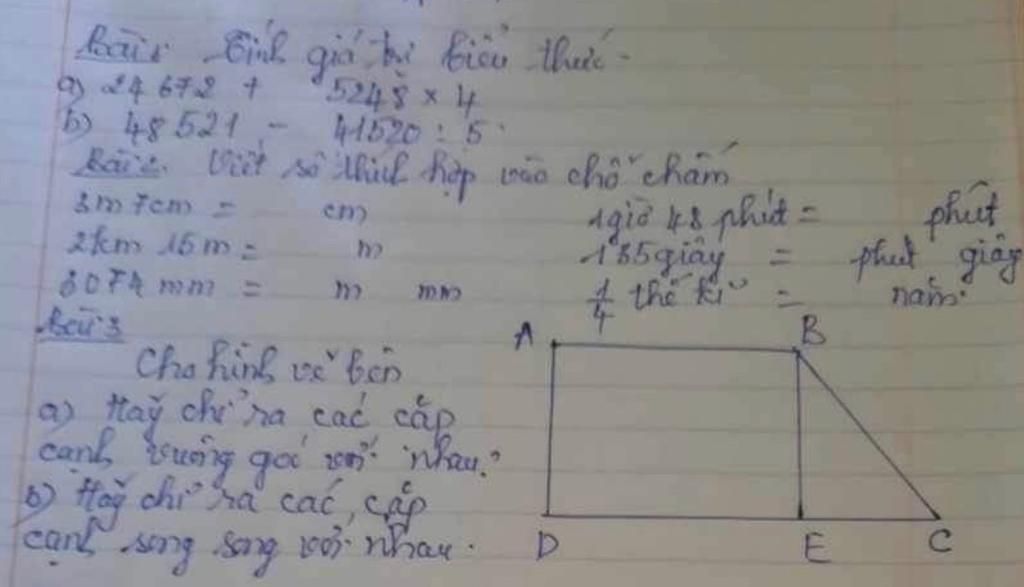 Bài 1. Tính giá trị biểu thức.
a) 24672 + 5248 × 4
b) 48521 - 41520 : 5
Bài 2. Viết số thích hợp vào chỗ chấm
3m7cm = cm 1giờ 48 phút = phút
2km 15m = m 185giây = phút giây
3074mm = m mm 1/4 thế kỉ = năm.
Bài 3
Cho hình vẽ bên
a) Hãy chỉ ra các cặp
cạnh vuông góc với nhau?
b) Hãy chỉ ra các cặp
cạnh song song với nhau.
A B
D E C